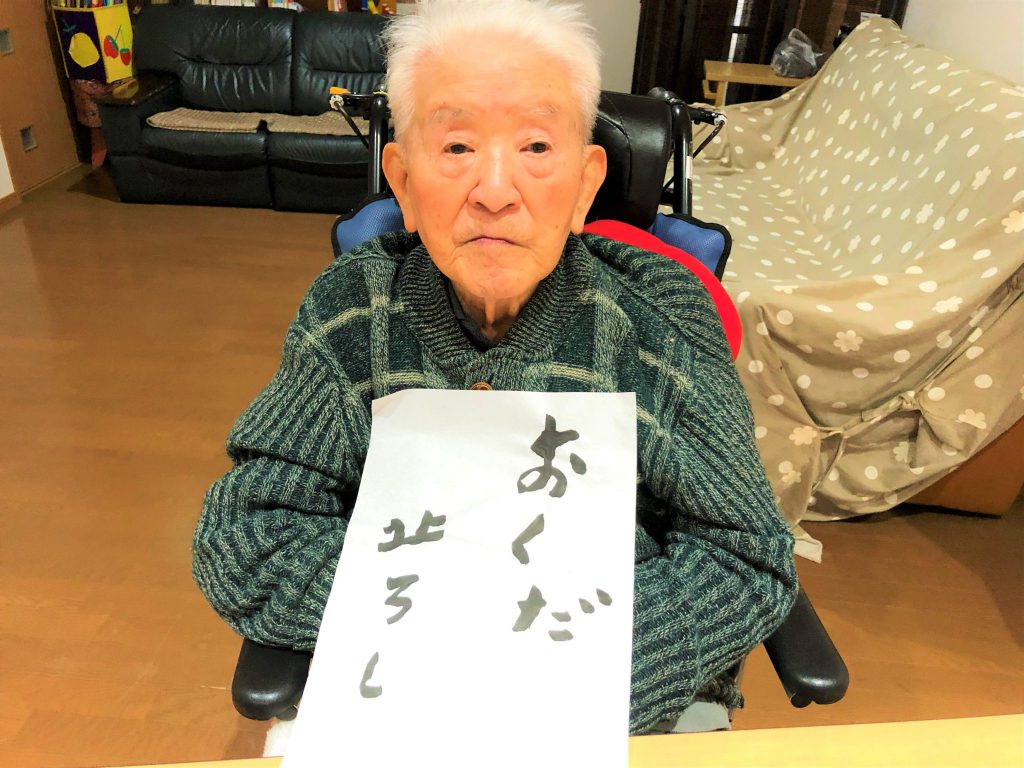 おくだ
ろし